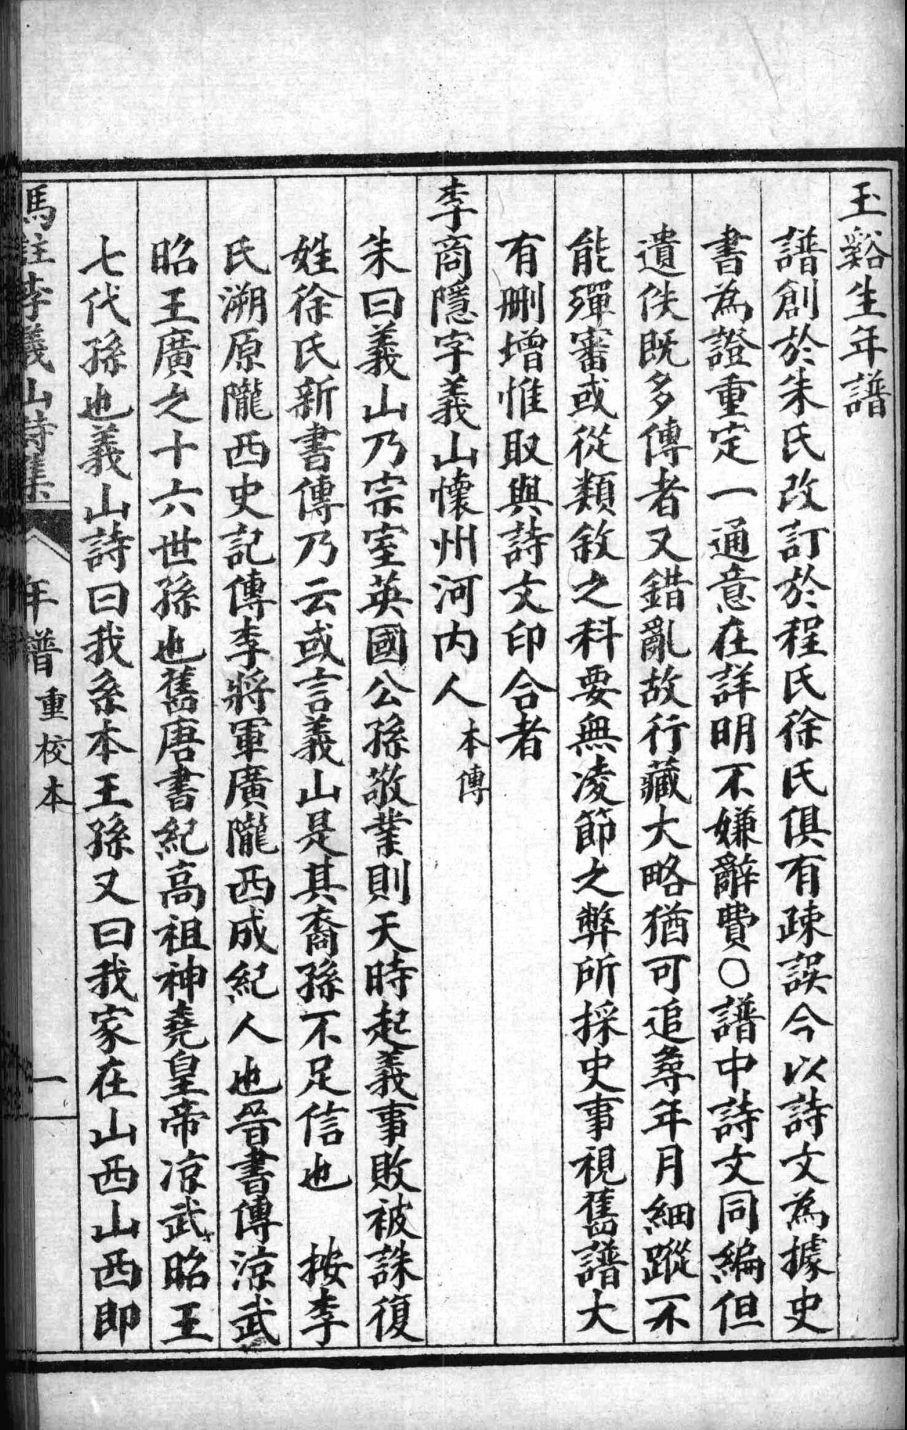 玉谿生年譜
譜創於朱氏改訂於程氏徐氏俱有疎誤今以詩文為據史
書為證重定一通意在詳明不嫌辭費○譜中詩文同編但
遺佚既多傳者又錯亂故行藏大略猶可追尋年月細蹤不
能殫審或從類敘之科要無凌節之弊所採史事視舊譜大
有刪增惟取與詩文印合者
李商隱字義山懷州河内人本傳
朱曰義山乃宗室英國公孫敬業則天時起義事敗被誅復
姓徐氏新書傳乃云或言義山是其裔孫不足信也　按李
氏溯原隴西史記傳李將軍廣隴西成紀人也晉書傳涼武
昭王廣之十六世孫也舊唐書紀高祖神堯皇帝凉武昭王
七代孫也義山詩曰我系本王孫又曰我家在山西山西即
馮註李義山詩集　年譜　重校本　一